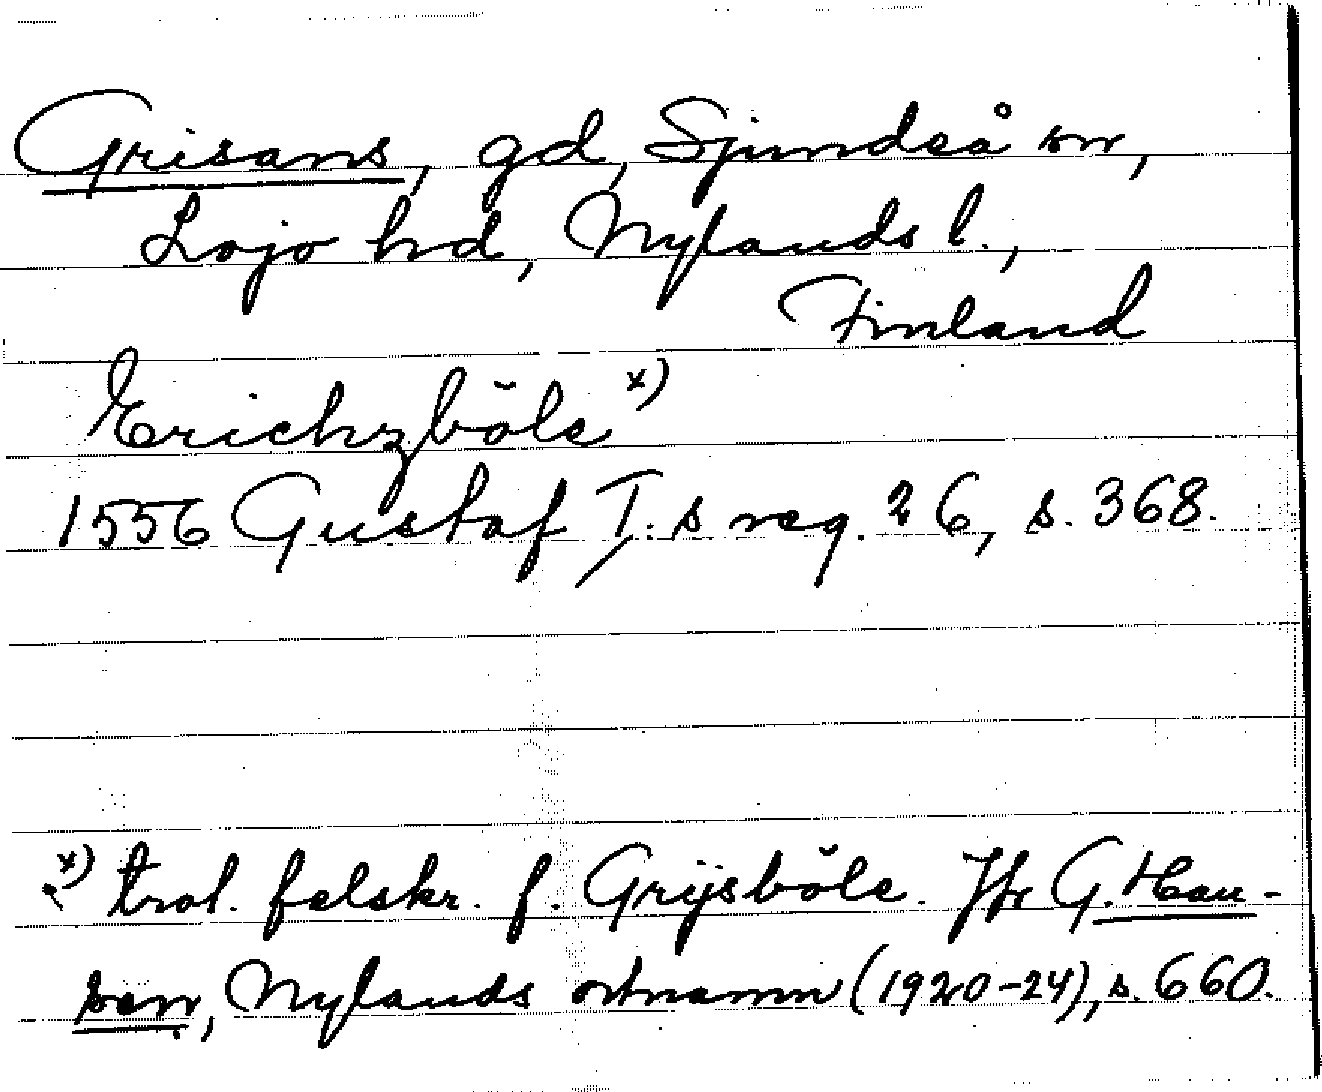 Grisans, gd, Sjundeå sn,
Lojo hd, Nylands l.,
Finland
Erichzböle x)
1556 Gustaf I:s reg. 26, s. 368.
x) trol. felskr. f. Grijsböle. Jfr G. Hau-
sen, Nylands ortnamn (1920-24), s. 660.